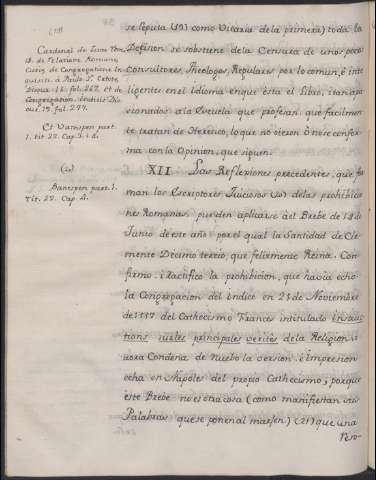 (19)
Cardenal de Luca Tom.
15. de Relatione Romane
Curie de Congregatione In
quisit. à Paulo 3. Erecte,
Discus. 14. fol. 262. et de
Congregation. Indicis Dis
cus. 19. fol. 277.
Et Vanspen part.
1. tit 22. Cap. 5. i 4.
(20)
Banespen part. 1.
Tit. 22. Cap. 4.
se reputa (19) como Vicaria de la primera) toda la
Decision se sobstiene de la Censura de unos pocos
Consultores, Theologos, Regulares por lo comun, è inte
ligentes en el idioma en que ésta el Libro, i tan apa
sionados a la Escuela que profesan, que facilmen
te tratan de Heretico, lo que no vieron ò no es confor
ma con la Opinion, que siguen.
XII Las Reflexiones precedentes, que for
man los Escriptores Juiciosos (20) de las prohibicio
nes Romanas pueden aplicarse àel Brebe de 14 de
Junio de este año por el qual la Santidad de Cle
mente Decimo tercio, que felizmente Reina Con
firmo, i ractifico la prohibicion, que havia echo
la Congregacion del indice en 21 de Noviembre
de 1757 del Cathecismo Frances intitulado instruc
tions sur les principales verites de la Religion i
aora Condena de nuebo la version, è impresion
echa en Napoles del propio Cathecismo; porque
este Brebe no es otra cosa (como manifiestan sus
Palabras que se ponen al margen) (21) que una